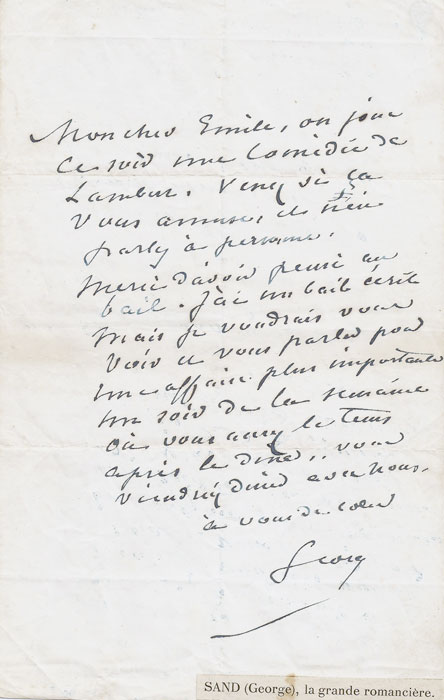 Mon cher Emile, on joue
ce soir une comédie de
Lambert. Venez si ça
vous amuse, et n'en
parlez à personne.
Merci d'avoir pensé au
bail. J'ai un bail écrit
mais je voudrais vous
voir et vous parler pour
une affaire plus importante
un soir de la semaine
où vous aurez le tems
après le dîner, vous
viendrez dîner avec nous.
à vous de cœur
George
SAND (George), la grande romancière.